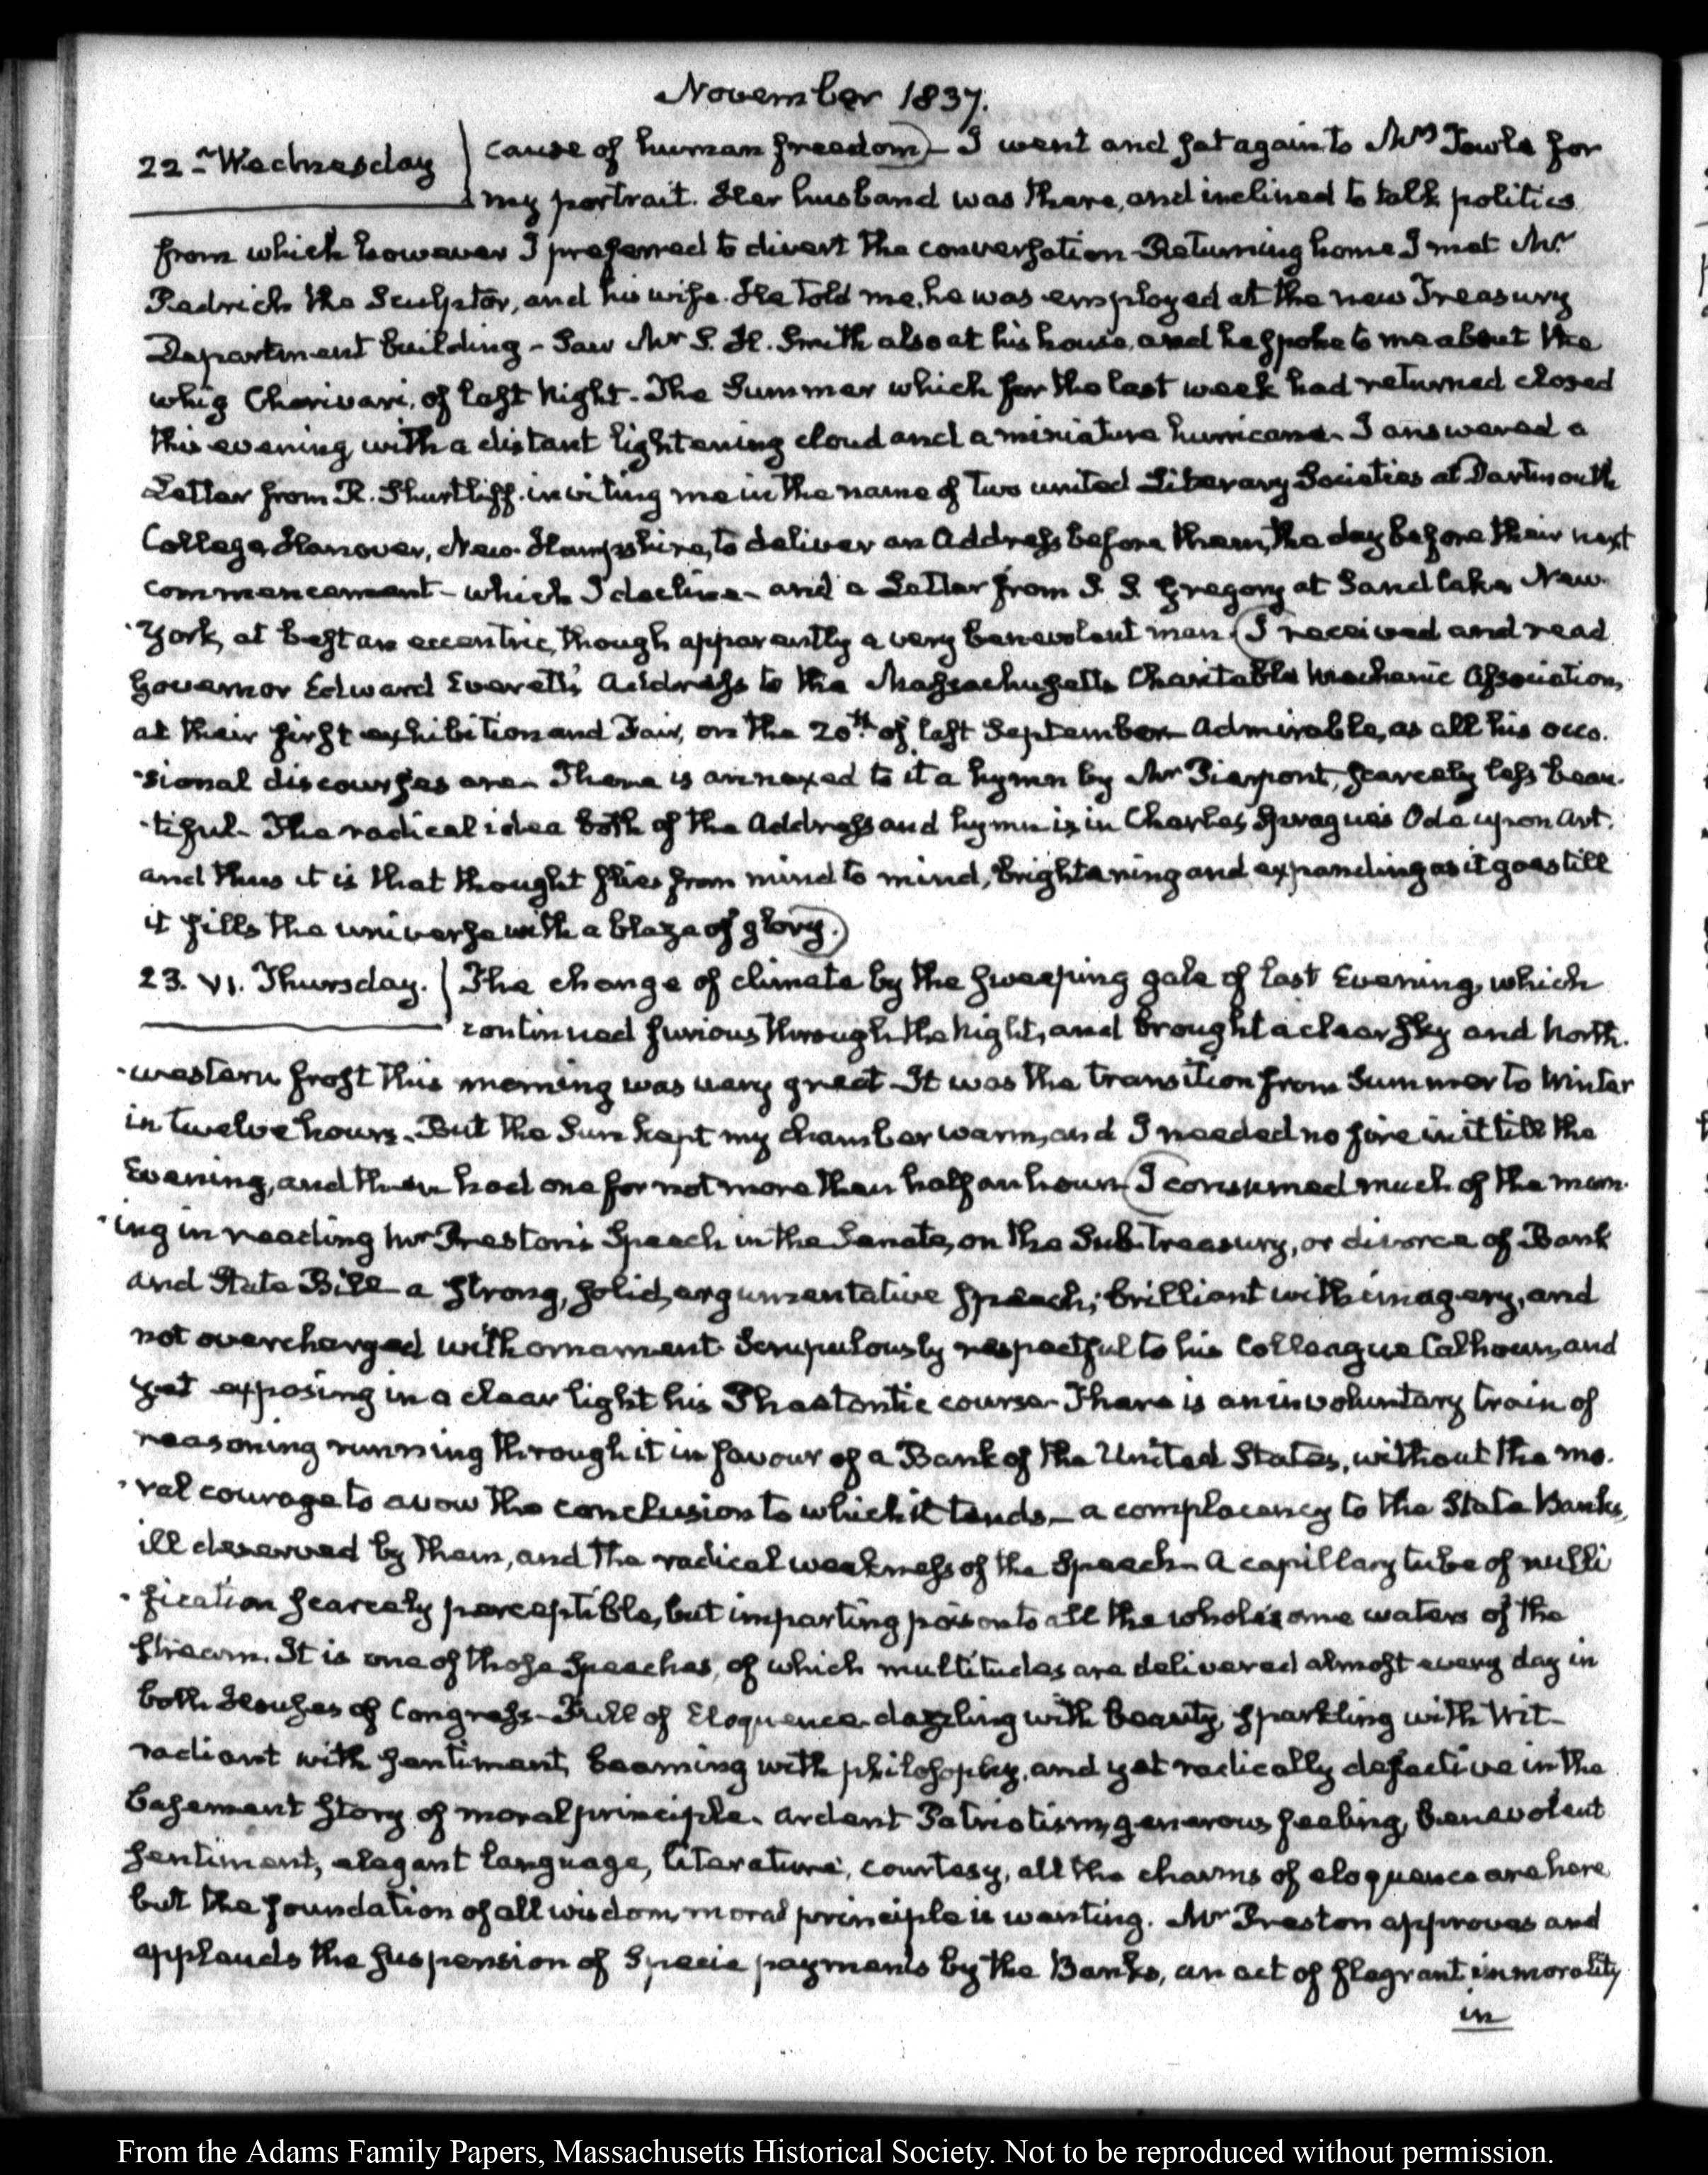 November 1837.
22. Wednesday
cause of human freedom) – I went and sat again to Mrs Towle for
my portrait. Her husband was there, and inclined to talk politics
from which however I preferred to divert the conversation – Returning home I met Mr
Pedrick the Sculptor, and his wife. He told me, he was employed at the new Treasury
Department building – Saw Mr S. H. Smith also at his house, and he spoke to me about the
whig Charivari, of last Night – The Summer which for the last week had returned closed
this evening with a distant lightening cloud and a miniature hurricane – I answered a
Letter from R. Shurtliff inviting me in the name of two united Literary Societies at Dartmouth
College Hanover, New-Hampshire, to deliver an Address before them, the day before their next
commencement – which I decline – and a Letter from S. S. Gregory at Sandlake New-
-York, at best an eccentric, though apparently a very benevolent man. (I received and read
Governor Edward Everett's Address to the Massachusetts Charitable Mechanic Association,
at their first exhibition and Fair, on the 20th of last September – Admirable, as all his occa-
-sional discourses are – There is annexed to it a hymn by Mr Pierpont, scarcely less beau-
-tiful – The radical idea both of the Address and hymn is in Charles Sprague's Ode upon Art.
and thus it is that thought flies from mind to mind, brightening and expanding as it goes till
it fills the universe with a blaze of glory.)
23. VI. Thursday.
The change of climate by the sweeping gale of last Evening, which
continued furious through the Night, and brought a clear sky and North-
-western frost this morning was very great – It was the transition from Summer to Winter
in twelve hours – But the Sun kept my chamber warm, and I needed no fire in it till the
Evening, and then had one for not more than half an hour – (I consumed much of the morn-
-ing in reading Mr Preston's Speech in the Senate, on the Sub-Treasury, or divorce of Bank
and State Bill – a strong, solid, argumentative speech; brilliant with imagery, and
not overcharged with ornament – Scrupulously respectful to his Colleague Calhoun, and
yet exposing in a clear light his Phaetontic course – There is an involuntary train of
reasoning running through it in favour of a Bank of the United States, without the mo-
-ral courage to avow the conclusion to which it tends – a complacency to the State Banks,
ill deserved by them, and the radical weakness of the Speech – A capillary tube of nulli
-fication scarcely perceptible, but imparting poison to all the wholesome waters of the
stream. It is one of those Speeches, of which multitudes are delivered almost every day in
both Houses of Congress – Full of Eloquence – dazzling with beauty, sparkling with Wit –
radiant with sentiment, beaming with philosophy, and yet radically defective in the
basement story of moral principle. Ardent Patriotism, generous feeling, benevolent
sentiment, elegant language, literature, courtesy, all the charms of eloquence are here
but the foundation of all wisdom, moral principle is wanting. Mr Preston approves and
applauds the suspension of Specie payments by the Banks, an act of flagrant immorality
in
From the Adams Family Papers, Massachusetts Historical Society. Not to be reproduced without permission.